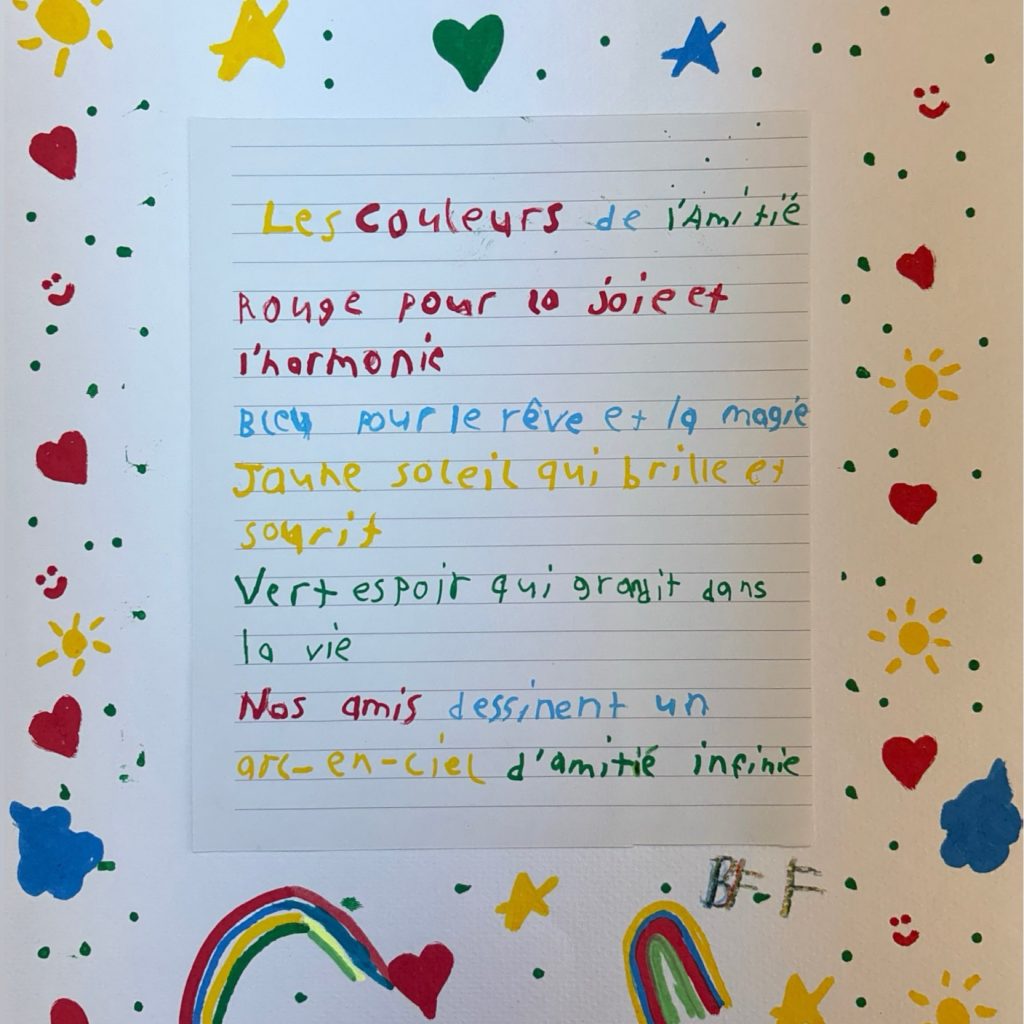 Les couleurs de l'Amitié
Rouge pour la joie et
l'harmonie
Bleu pour le rêve et la magie
Jaune soleil qui brille et
sourit
Vert espoir qui grandit dans
la vie
Nos amis dessinent un
arc-en-ciel d'amitié infinie
BFF